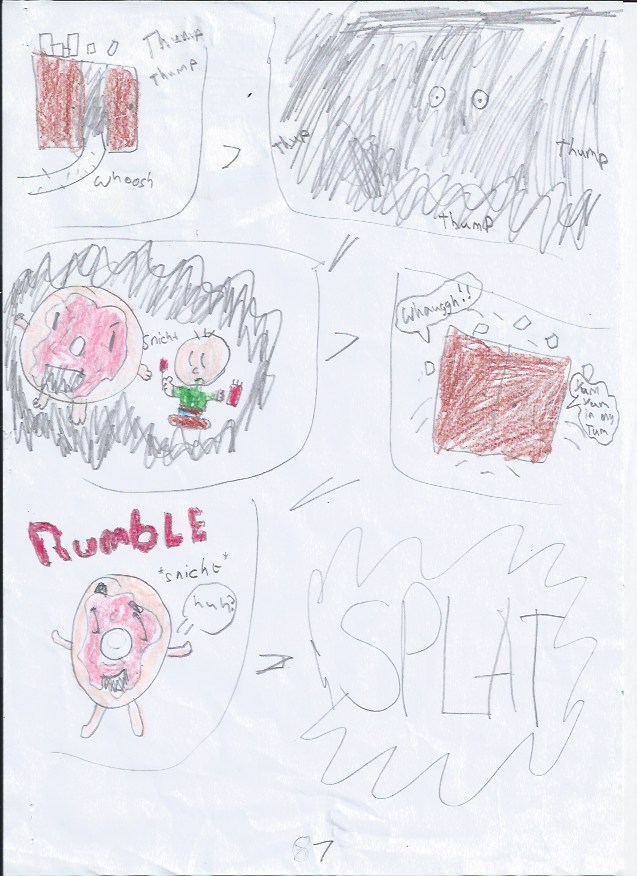 Thump
Thump
whoosh
Thump
Thump
Thump
snicht
Whauggh!!
Yum
Yum
in my
Tum
RUMBLE
*snicht*
huh?
SPLAT
87